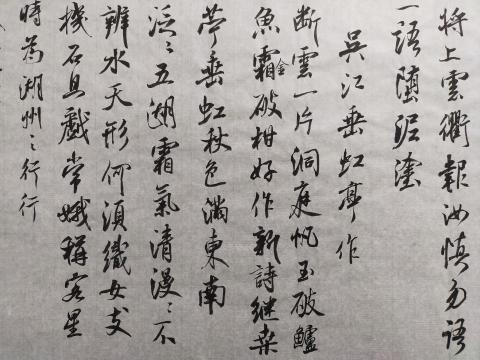 將上雲衢報汝慎勿語
一語墮泥塗
吳江垂虹亭作
斷雲一片洞庭帆玉破鱸
魚霜金破柑好作新詩継桑
苧垂虹秋色滿東南
泛〻五湖霜氣清漫〻不
辨水天形何須織女支
機石且戲常娥稱客星
時為湖州之行行